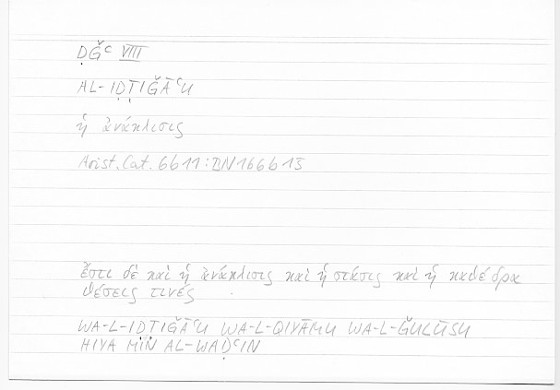 ḌǦʿ VIII
AL-IḌṬIǦĀʿU
ἡ ἀνάκλισις
Arist. Cat. 6b11 : DN 166b13
ἔστι δὲ καὶ ἡ ἀνάκλισις καὶ ἡ στάσις καὶ ἡ καθέδρα
θέσεις τινές
WA-L-IḌṬIǦĀʿU WA-L-QIYĀMU WA-L-ǦULŪSU
HIYA MIN AL-WAḌʿIN